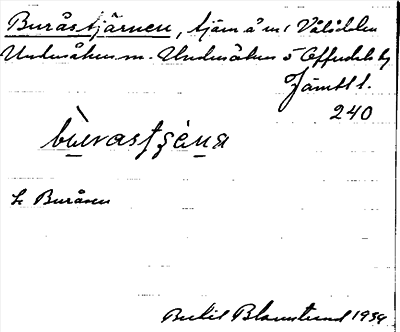 Buråstjärnen, tjärn å m i Vålådalen
Undersåkers sn. Undersåkers o Offerdals tg
Jämtl l.
240
bùrastʃæ̀ṇa
L. Buråsen
Bertil Blomstrand 1934